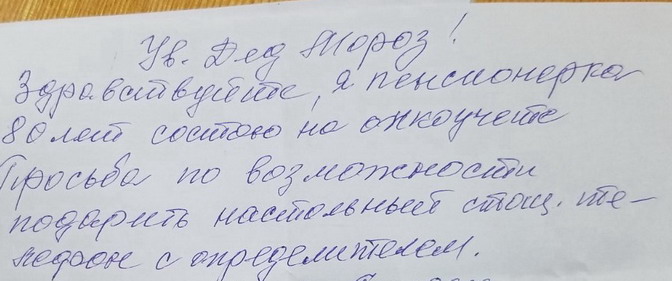 Ув. Дед Мороз!
Здравствуйте, я пенсионерка
80 лет состою на онкоучете
Просьба по возможности
подарить настольный стац. те-
лефон с определителем.